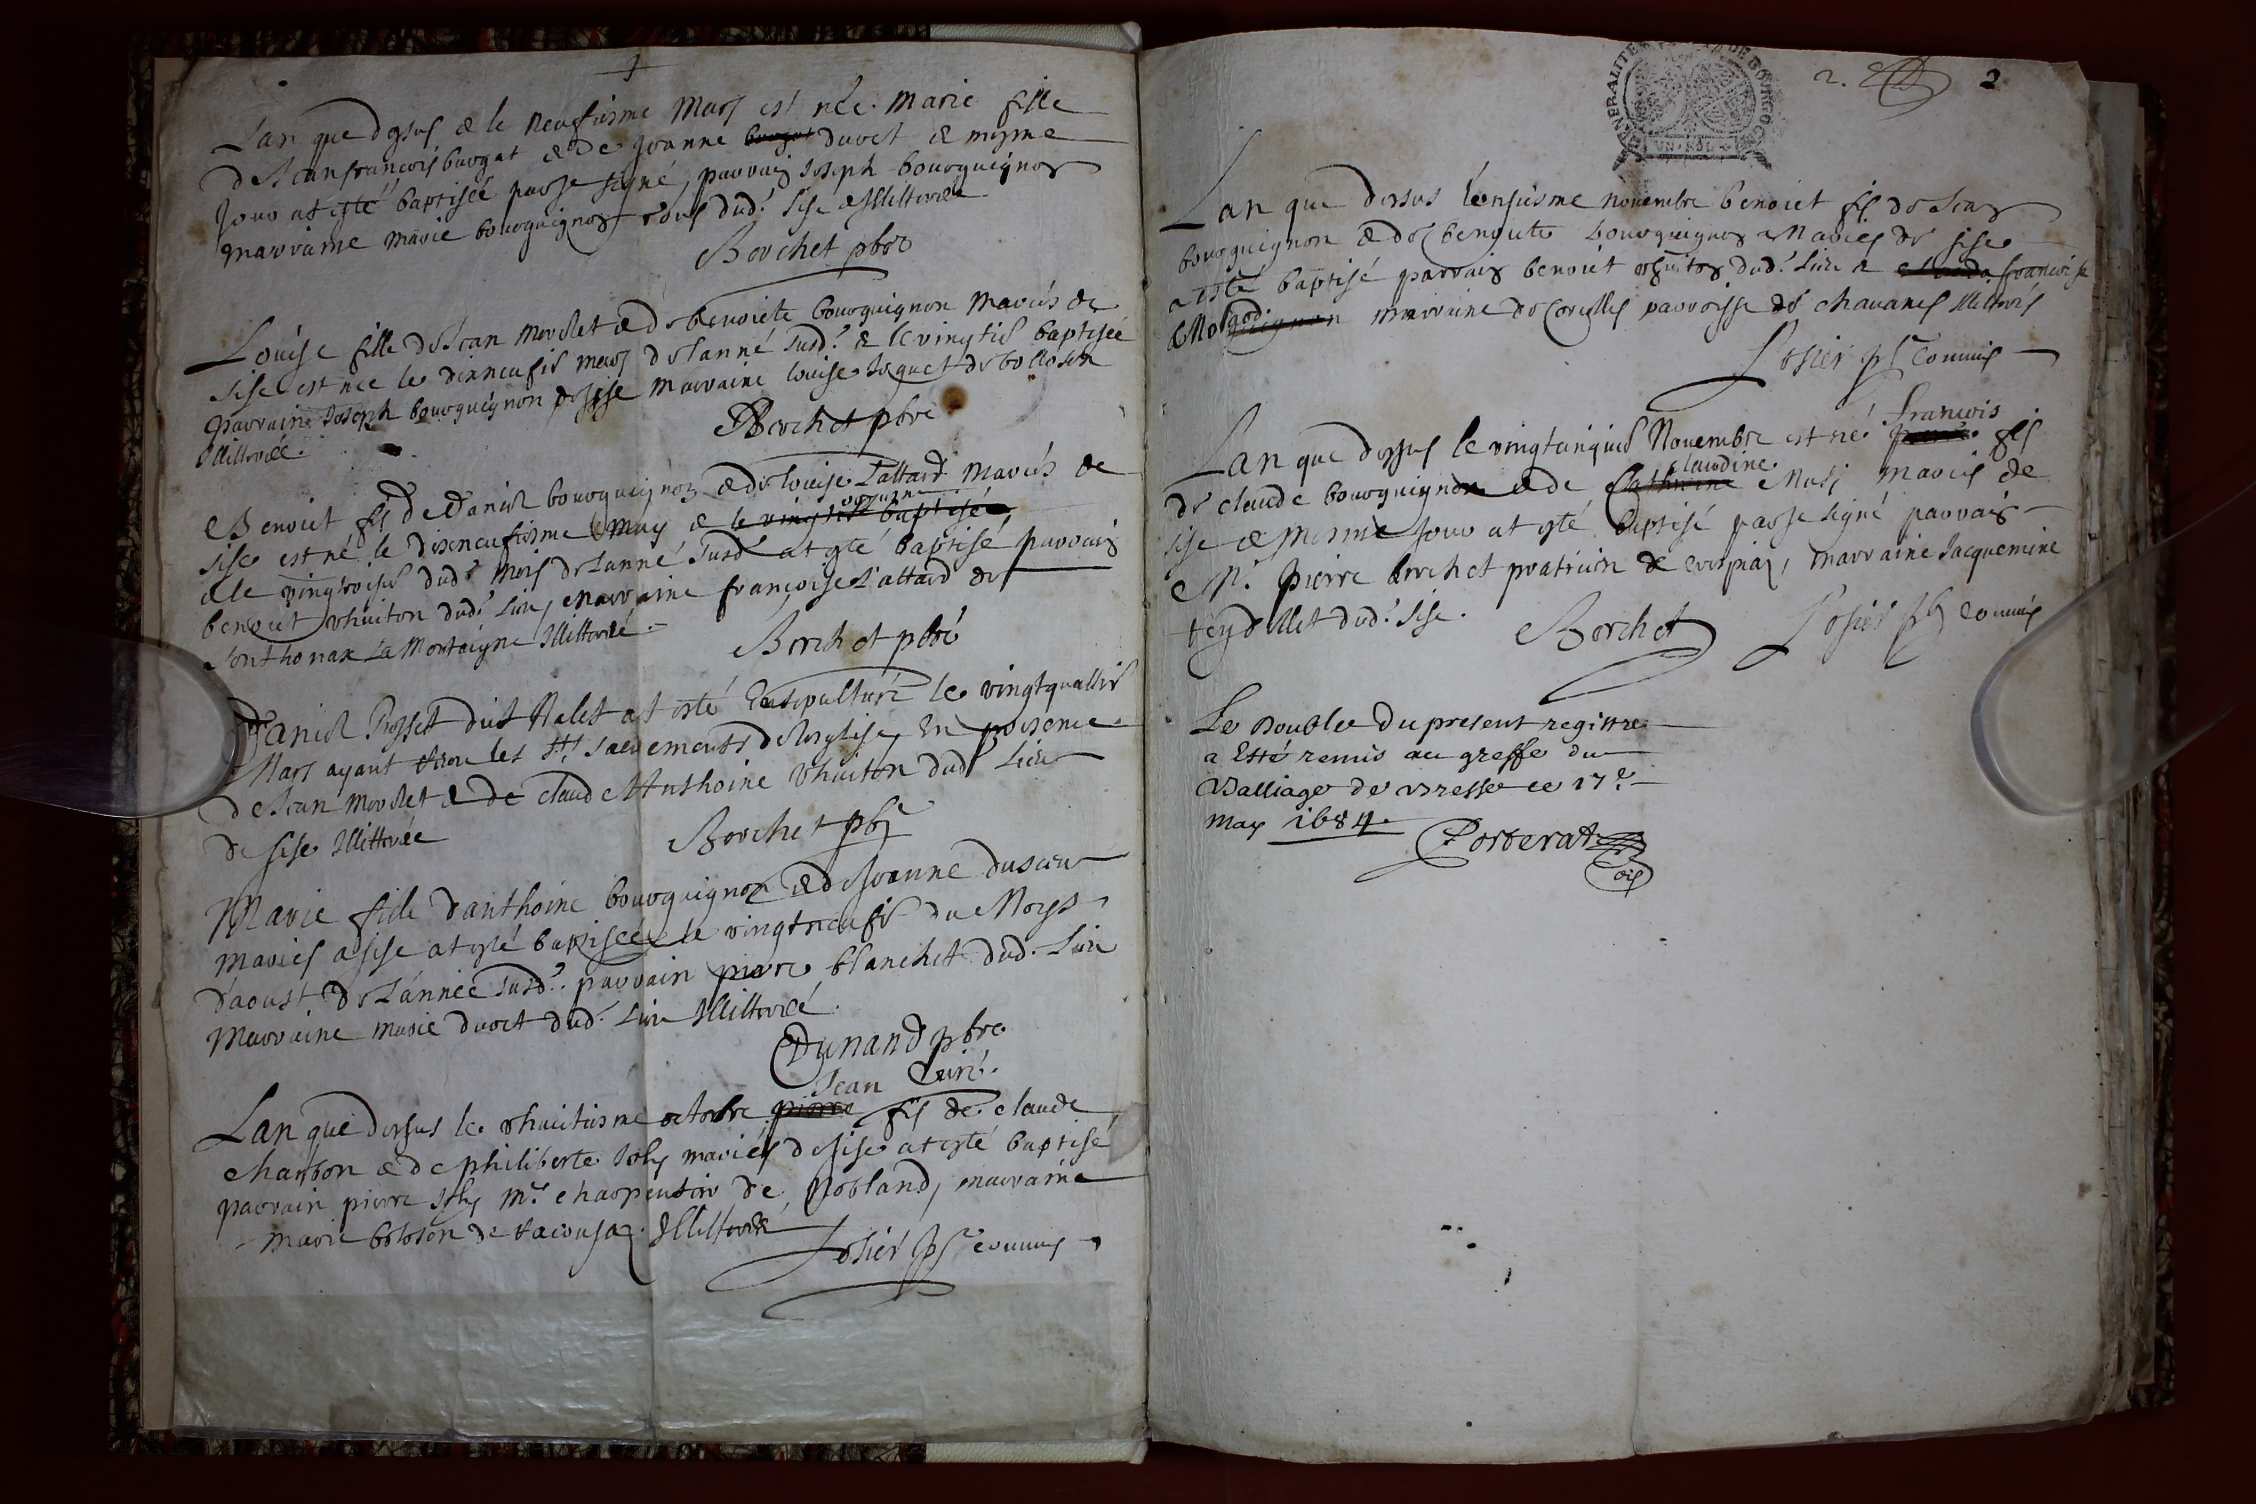 Lan que dessus & le neufiesme Mars est née Marie fille
de Jean françois burgat & de Jeanne duvet & mesme
jour at esté baptisée par se signé, parrain Joseph bourguignon
marraine marie bourguignon tous dud. Sise Illitterée
Borchet pbre
Louise fille de Jean Morelet & de benoiete bourguignon mariés de
Sise est née le dixneufie mars de lanné susd. & le vingtie baptisée
parrain Joseph bourguignon de sise marraine louise
Illitterée.
Borchet pbre
Benoiet fils de Daniel bourguignon & de louise Lattard mariés de
Sise est né le dixneufiesme May & le vingtie baptisé
dud. mois de lanné susd. at esté baptisé parrain
benoiet vhuiton dud. Lieu, marraine françoise Lattard de
Sonthonax la Montaigne Illitteré.
Borchet pbre
Daniel dict Valet at esté Ensepulturé le vingtquattrie
Mars ayant les Sts. sacrements de leglise, En presence
de Jean Morelet & de claude Anthoine vhuiton dud. Lieu
de sise Illitterée
Borchet pbr
Marie fille danthoine bourguignon & de Jeanne
mariés a sise at esté baptisée le vingtneufie du Moys
daoust de lannée susd. parrain pierre blanchet dud. Lieu
Marraine marie duvet dud. Lieu Illitteré.
Dunand pbre
Curé.
Jean
Lan que dessus le vhuitiesme octobre pierre fils de claude
charbon & de philiberte Joly mariés de sise at esté baptisé
parrain pierre Joly Mre charpentier de Nobland, marraine
marie boloson de Illitteré
Losier commis
GENERALITE DE BOURGOGNE
UN SOL
2.
2
Lan que dessus novembre benoiet fils de Jean
bourguignon & de benoiete bourguignon Mariés de sise
a esté baptisé parrain benoiet vhuiton dud. Lieu & françoise
marraine de Corcelles parroisse de chavanes Illiterés
Losier commis
françois
Lan que dessus le vingtcinquie Novembre est né fils
claudine
de claude bourguignon & de Catherine Mariés de
sise & mesme jour at esté baptisé par se signé parrain
Mr. pierre borchet praticien de, marraine Jacquemine
dud. Sise.
Borchet
Losier commis
Le Double du present registre
a Esté remis au greffe du
Balliage de Bresse ce 17e.
May 1684.